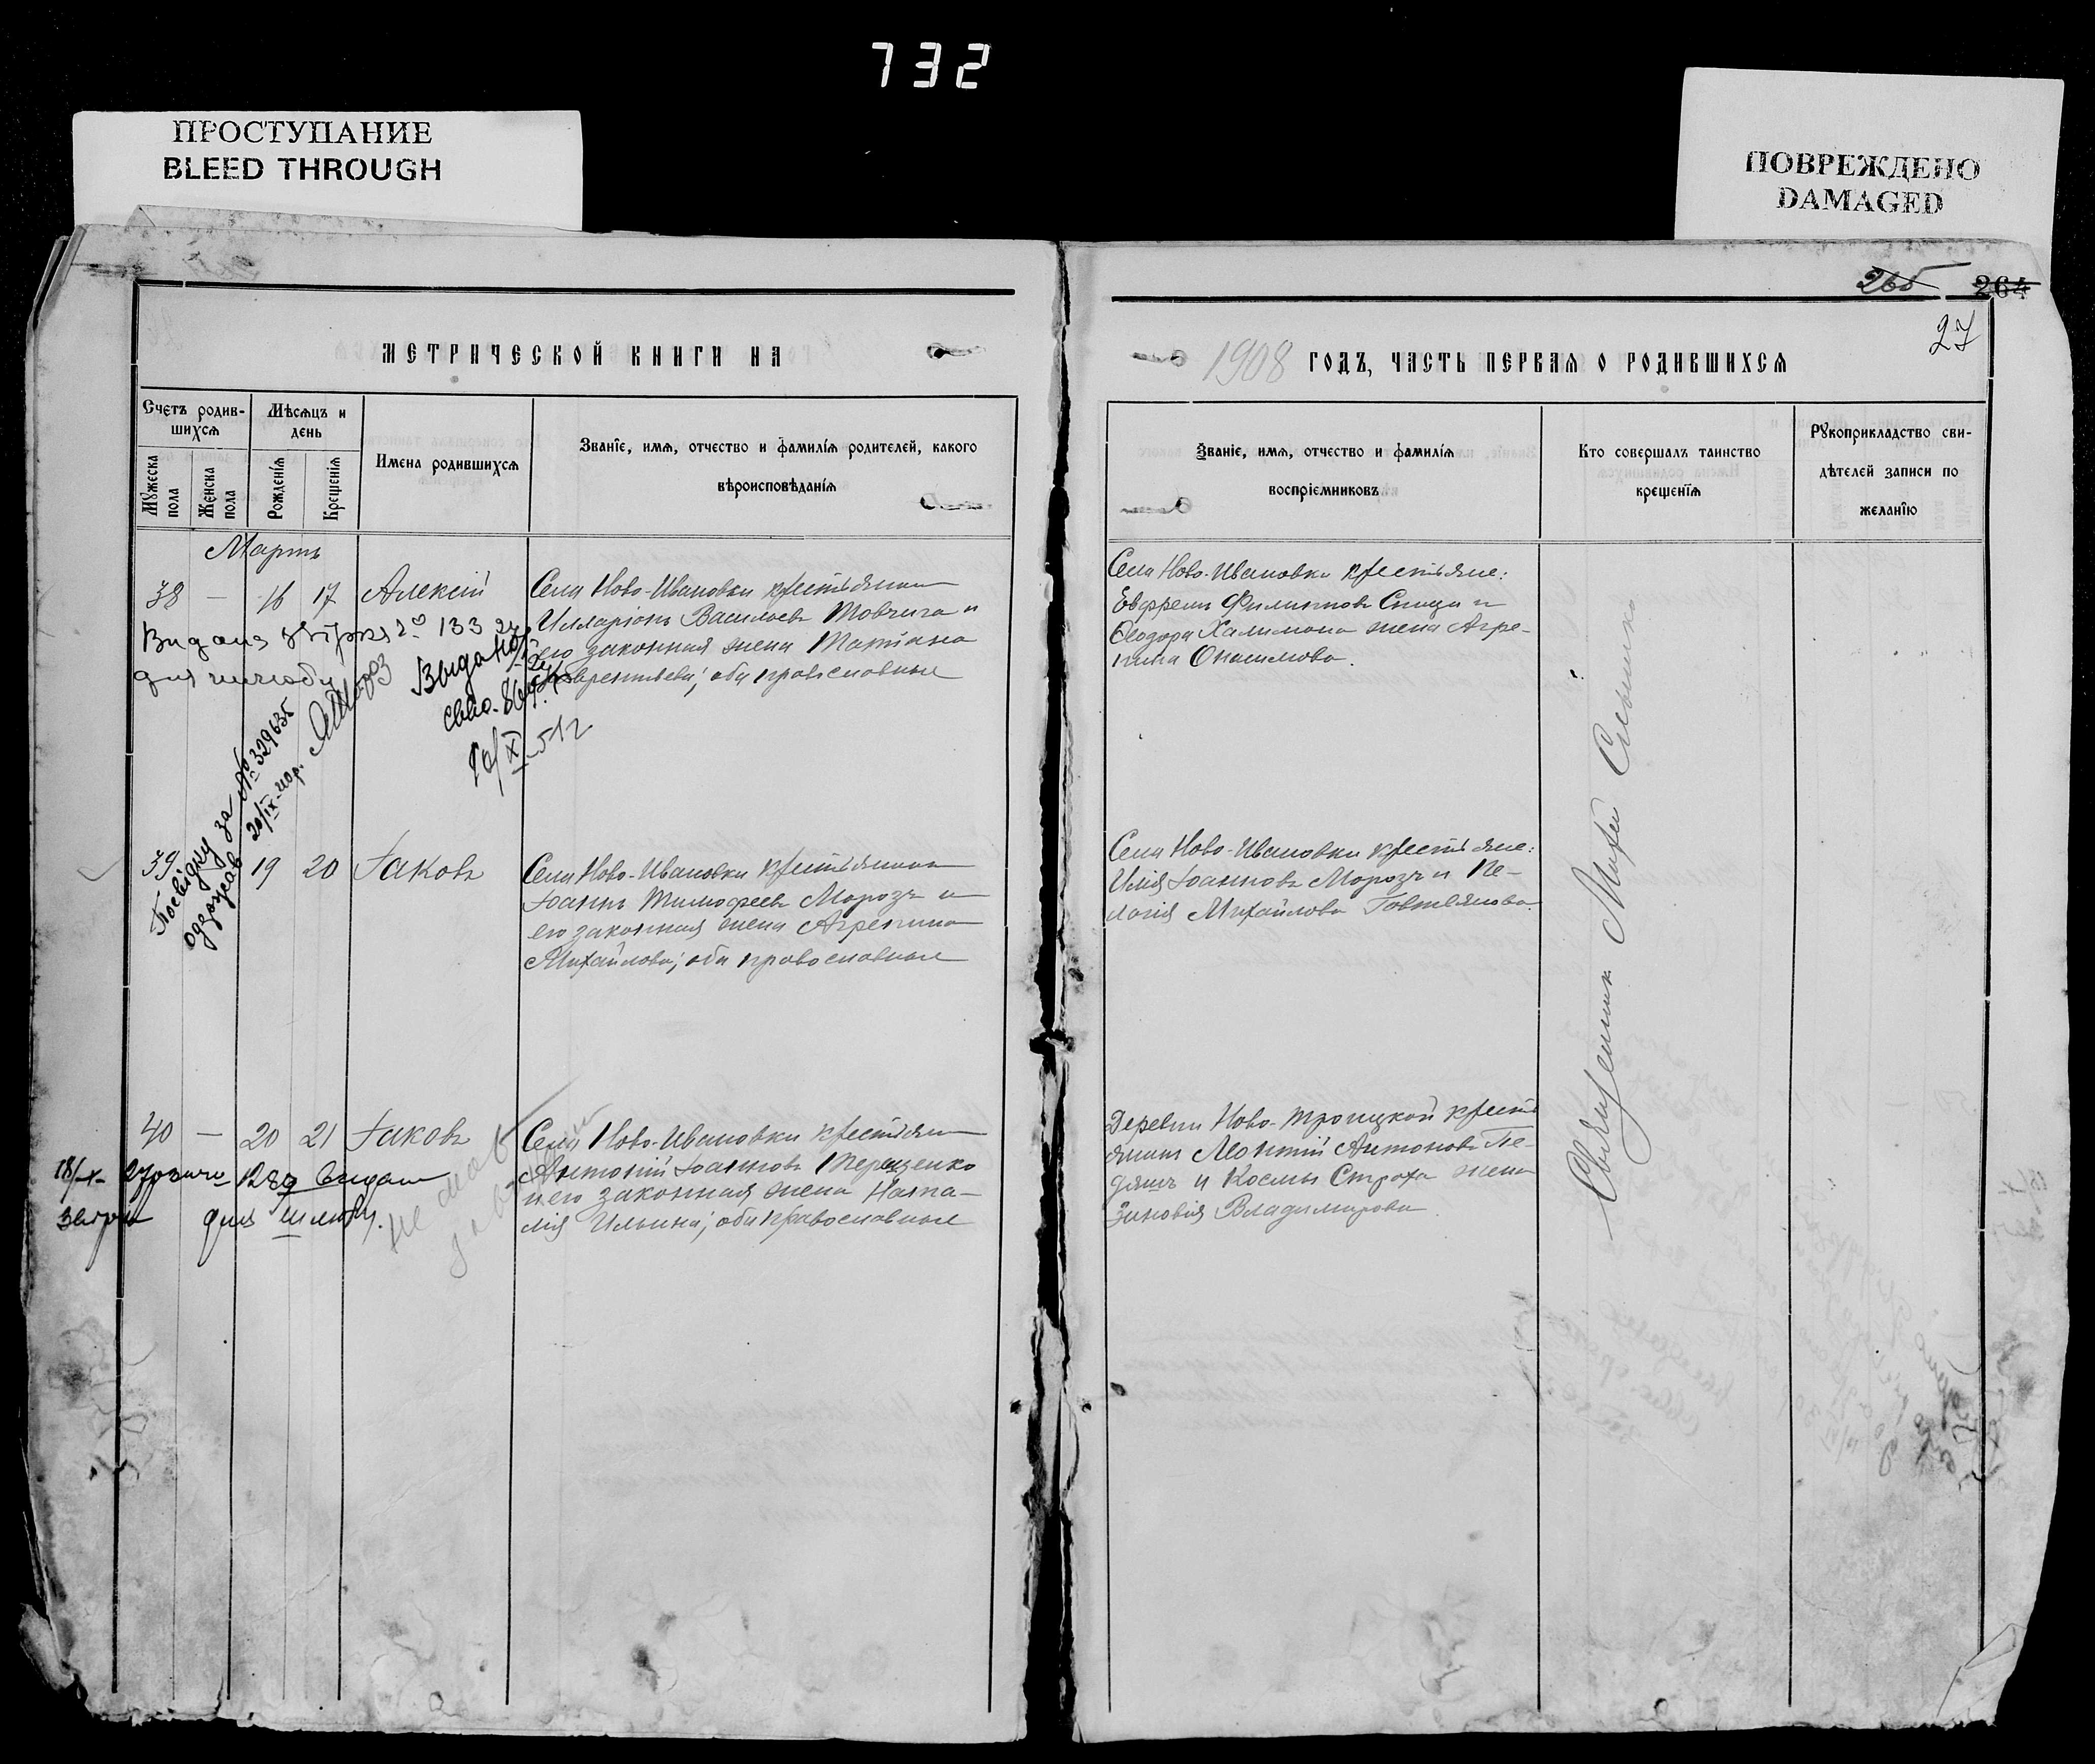 732
ПРОСТУПАНИЕ
BLEED THROUGH
ПОВРЕЖДЕНО
DAMAGED
265 264
27
МЕТРИЧЕСКОЙ КНИГИ НА
1908 ГОДЪ, ЧАСТЬ ПЕРВАЯ О РОДИВШИХСЯ
Счетъ родив-
шихся
Мѣсяцъ и
день
Мужеска
пола
Женска
пола
Рожденія
Крещенія
Имена родившихся
Званіе, имя, отчество и фамилія родителей, какого
вѣроисповѣданія
Званіе, имя, отчество и фамилія
воспріемниковъ
Кто совершалъ таинство
крещенія
Рукоприкладство сви-
дѣтелей записи по
желанію
Мартъ
38 — 16 17 Алексій
Села Ново-Ивановки крестьянинъ
Илларіонъ Васильевъ Товчига и
его законная жена Татіана
оба православные
Села Ново-Ивановки крестьяне:
Евфремъ Филипповъ Спица и
Ѳеодора Халимона жена Агре-
пина Онисимова.
133
для шлюбу
Мороз
Выдано
10/X-51г
Посвідку за № 329635
одержав 20/IX-40р.
39 19 20 Іаковъ
Села Ново-Ивановки крестьянинъ
Іоаннъ Тимофеевъ Морозъ и
его законная жена Агрепина
Михайлова; оба православные
Села Ново-Ивановки крестьяне:
Илія Іоанновъ Морозъ и Пе-
лагія Михайлова
40 — 20 21 Іаковъ
Села Ново-Ивановки крестьянинъ
Антоній Іоанновъ Терещенко
и его законная жена Ната-
лія Ильина; оба православные
Деревни Ново-Троицкой крестъ
янинъ Леонтій Антоновъ Пе-
дяшъ и Космы Строха жена
Зиновія Владимирова
для шлюбу.
Священник Михей